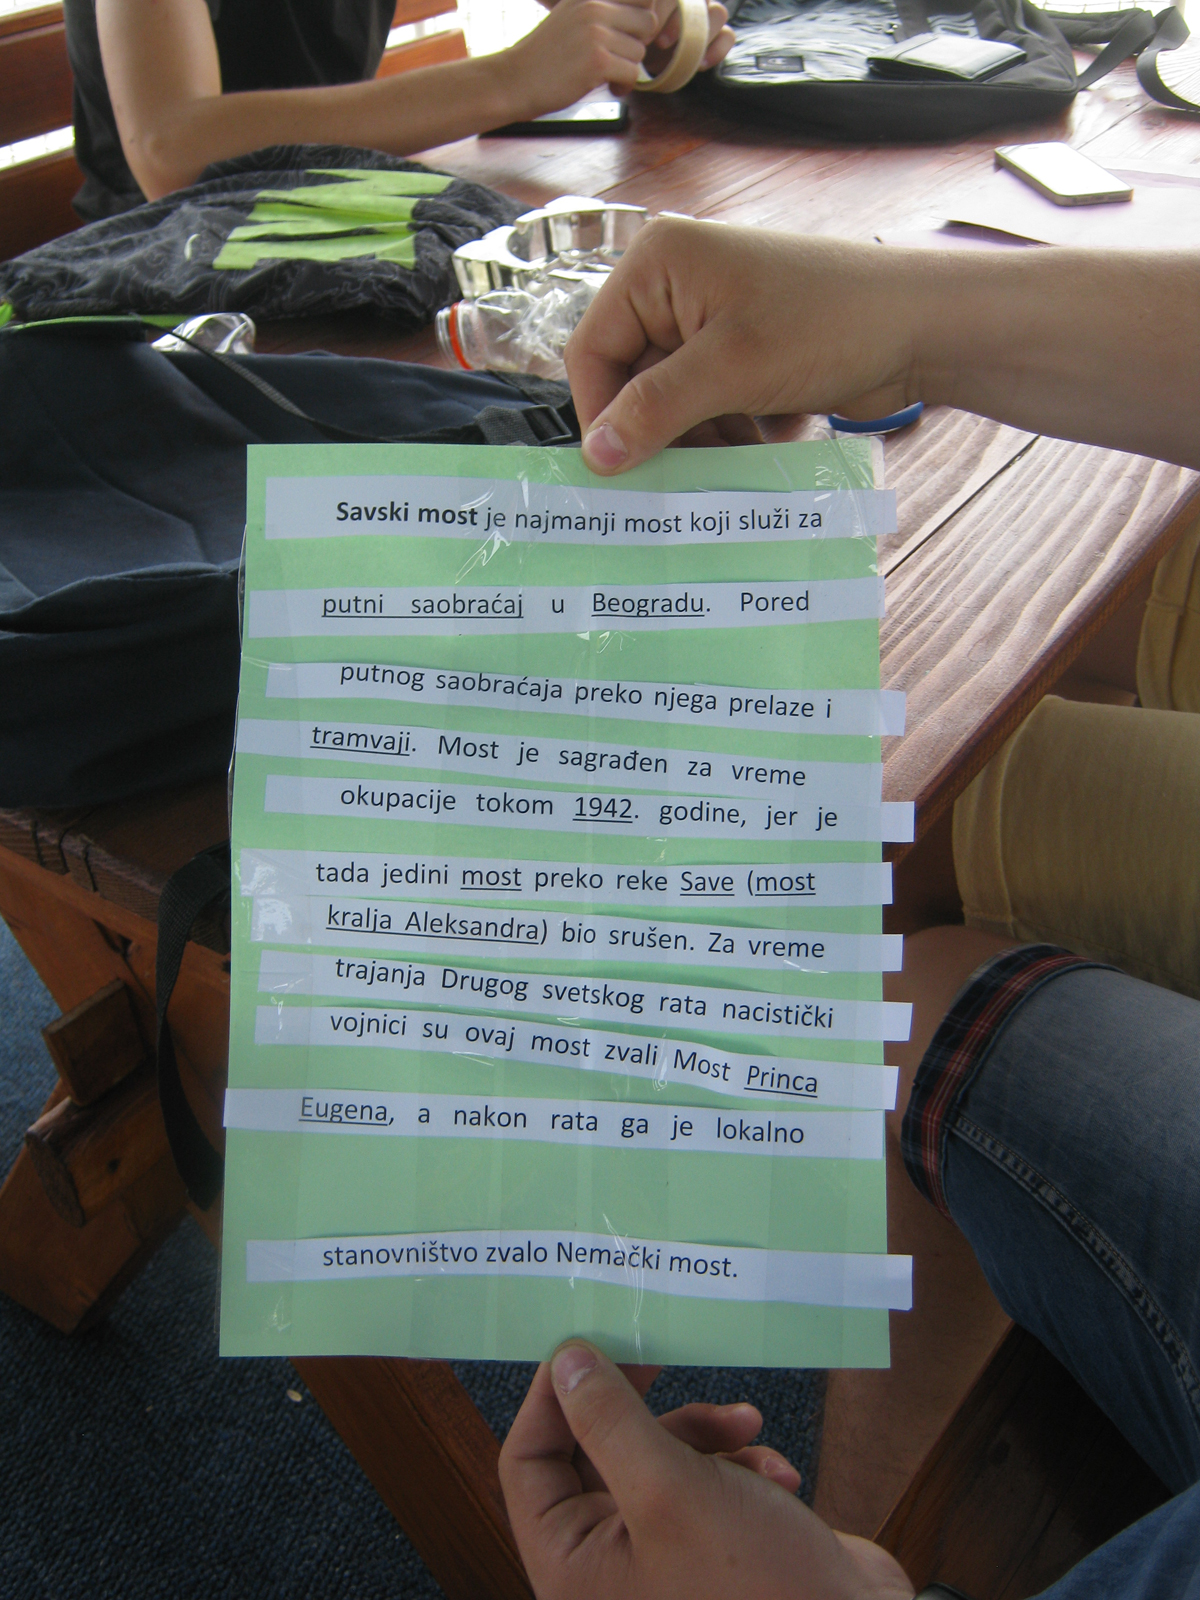 Savski most je najmanji most koji služi za
putni saobraćaj u Beogradu. Pored
putnog saobraćaja preko njega prelaze i
tramvaji. Most je sagrađen za vreme
okupacije tokom 1942. godine, jer je
tada jedini most preko reke Save (most
kralja Aleksandra) bio srušen. Za vreme
trajanja Drugog svetskog rata nacistički
vojnici su ovaj most zvali Most Princa
Eugena, a nakon rata ga je lokalno
stanovništvo zvalo Nemački most.